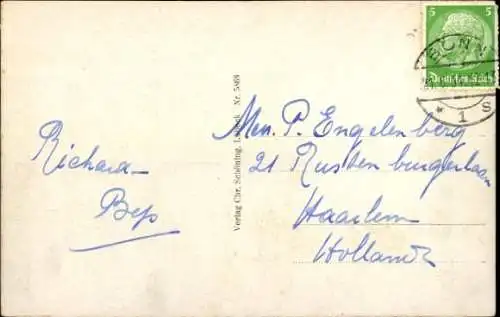 5 5
BONN
Deutsches Reich
* 1 s
Richard
Bep
Verlag Chr. Schöning, Lübeck Nr. 5868
Men. P. Engelenberg
21 Rustenburgerlaan
Haarlem
Holland